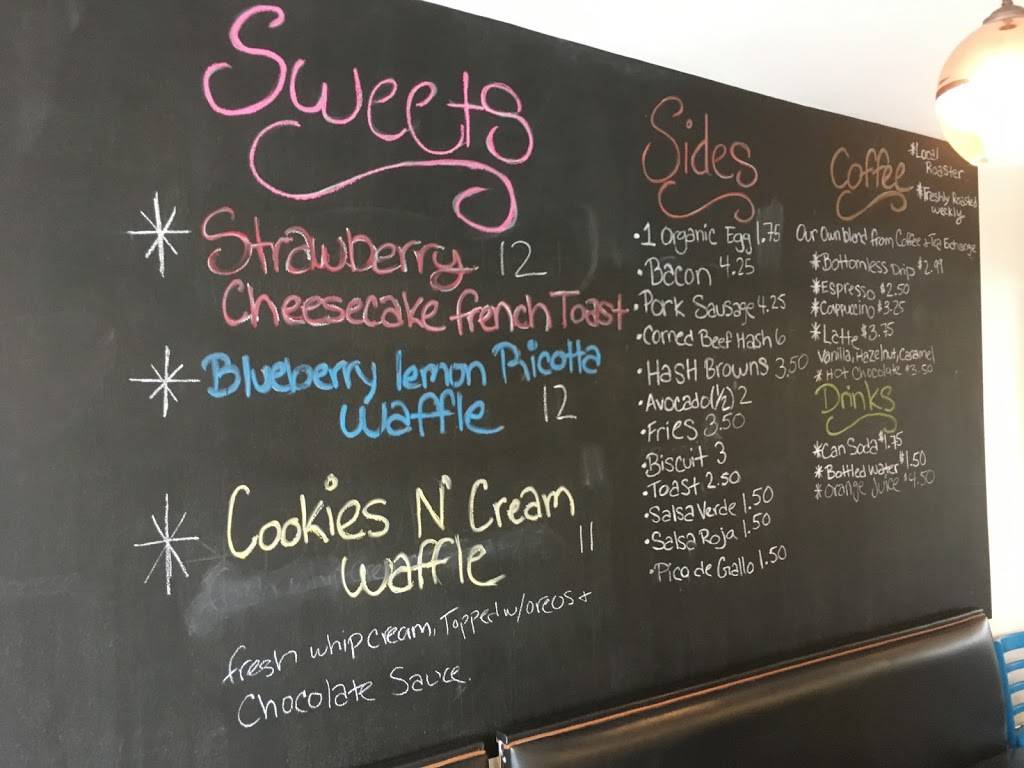 Sweets
* Strawberry 12
Cheesecake french Toast
* Blueberry lemon Ricotta
waffle 12
* Cookies N' Cream
waffle 11
fresh whip cream, Topped w/oreos +
Chocolate Sauce.
Sides
• 1 Organic Egg 1.75
• Bacon 4.25
• Pork Sausage 4.25
• Corned Beef Hash 6
• Hash Browns 3.50
• Avocado (½) 2
• Fries 3.50
• Biscuit 3
• Toast 2.50
• Salsa Verde 1.50
• Salsa Roja 1.50
• Pico de Gallo 1.50
Coffee
*Local
Roaster
*Freshly Roasted
weekly
Our Own blend from Coffee + Tea Exchange
*Bottomless Drip $2.99
*Espresso $2.50
*Cappuccino $3.25
*Latte $3.75
Vanilla, Hazelnut, Caramel
*Hot Chocolate $3.50
Drinks
*Can Soda $1.75
*Bottled water $1.50
*Orange Juice $4.50